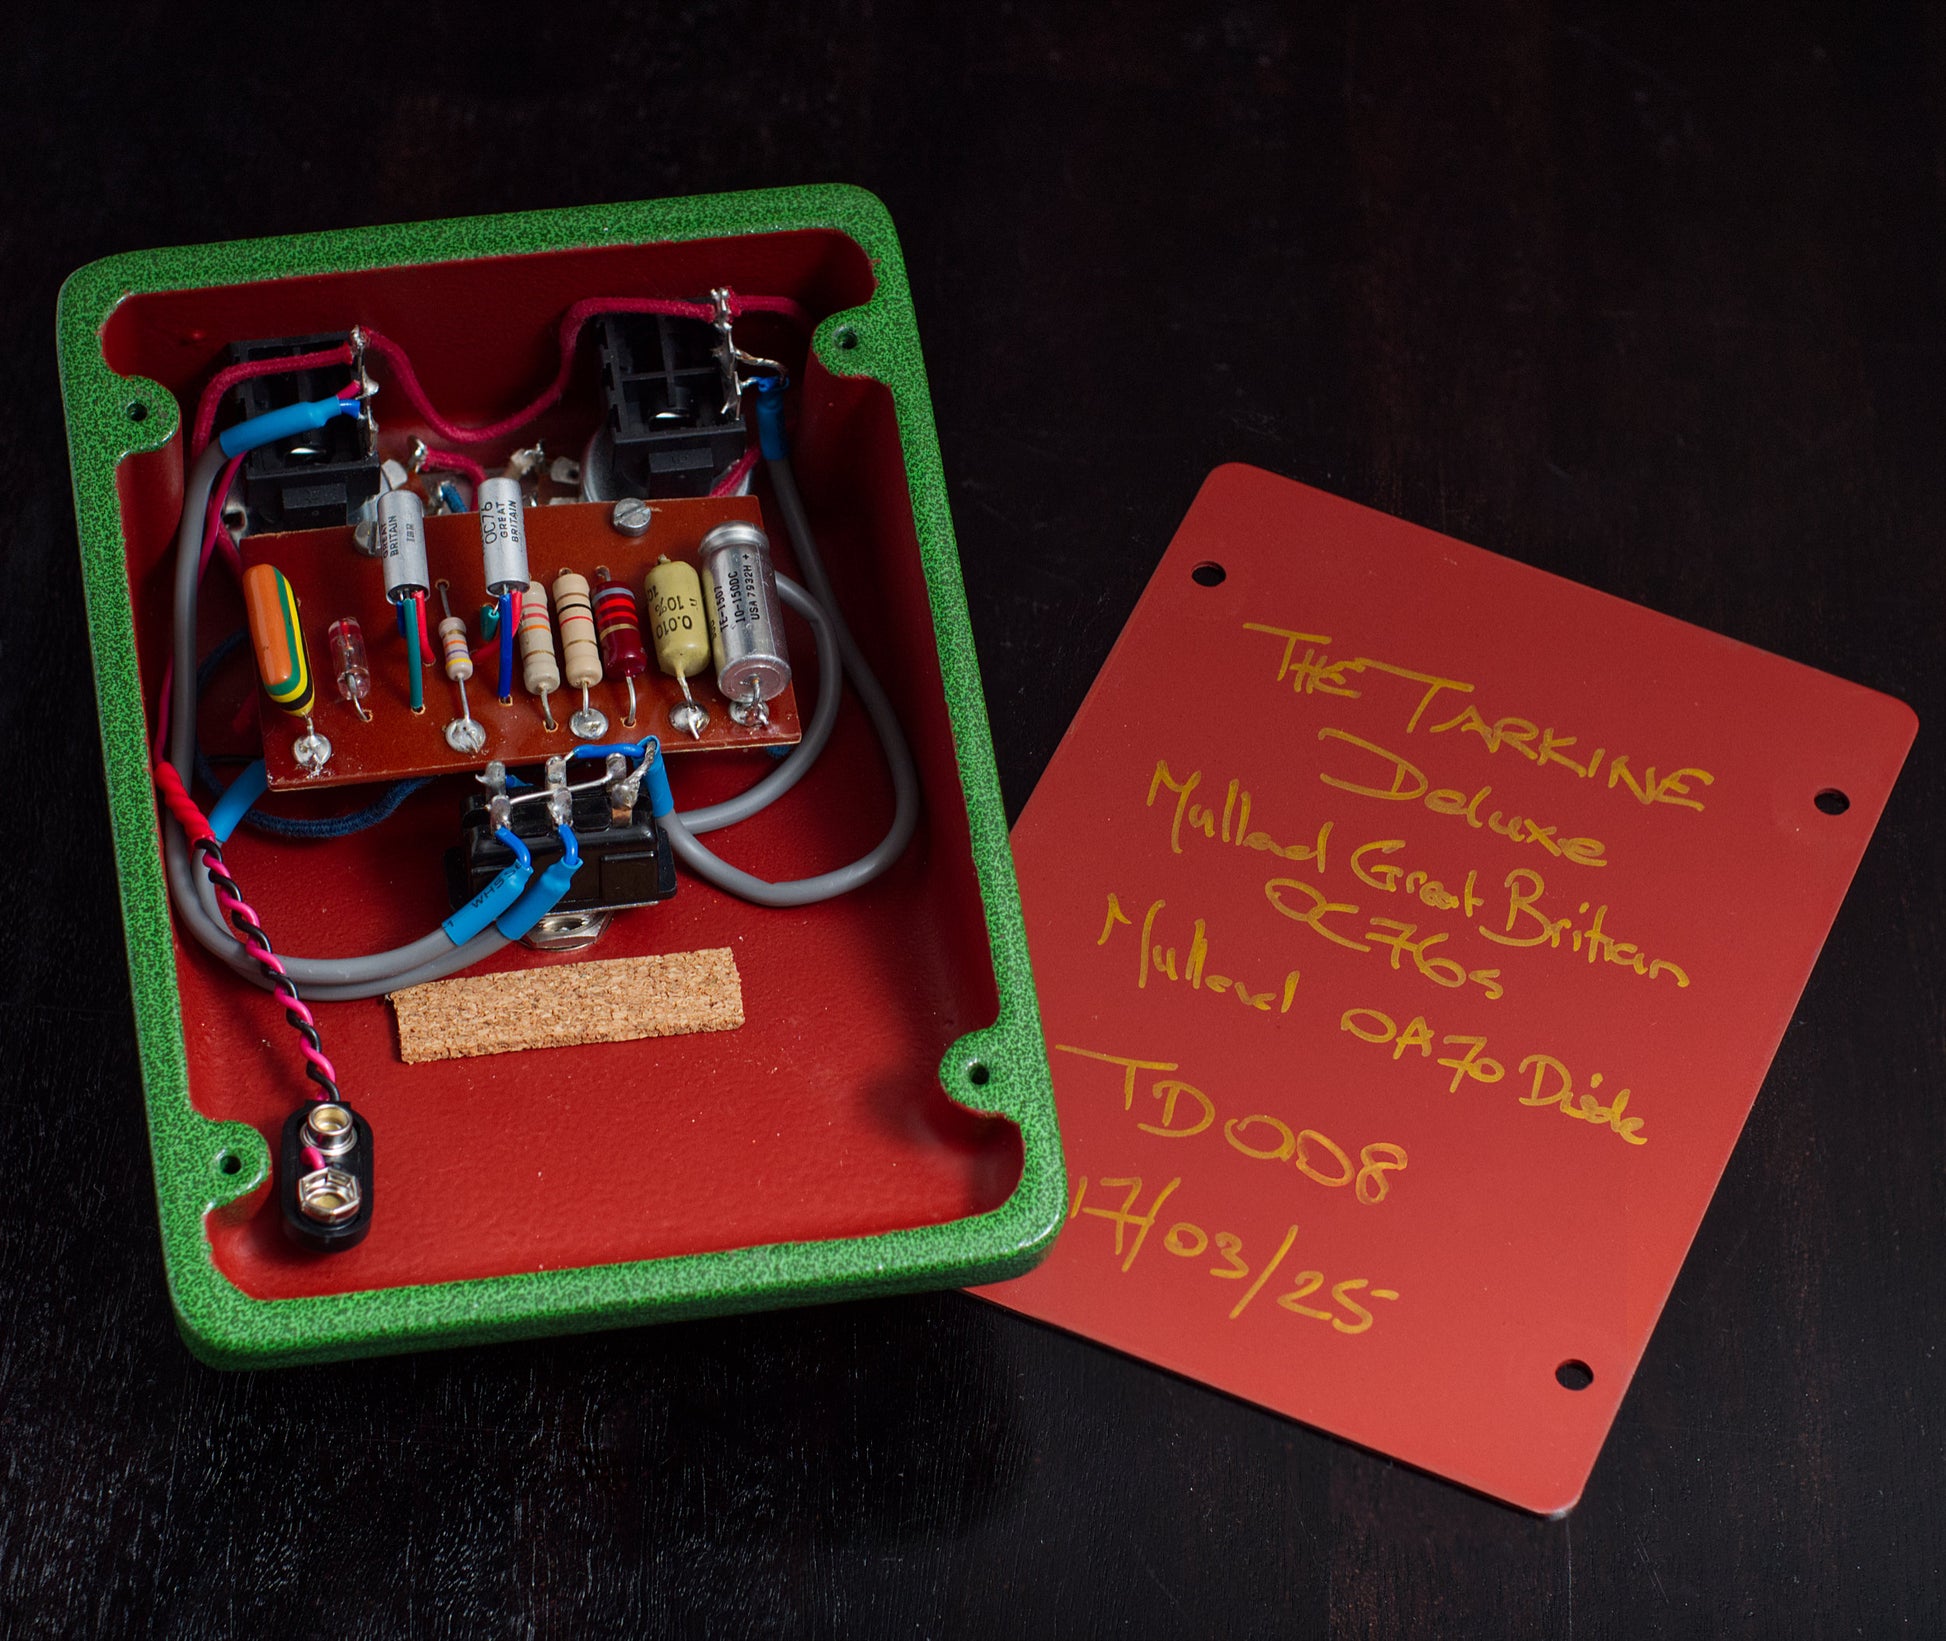 GREAT
BRITAIN
OC76
GREAT
BRITAIN
0.010
10%
TE-1507
10-150DC
USA 7932H +
THE TARKINE
Deluxe
Mullard Great Britian
OC76s
Mullard OA70 Diode
TD008
17/03/25